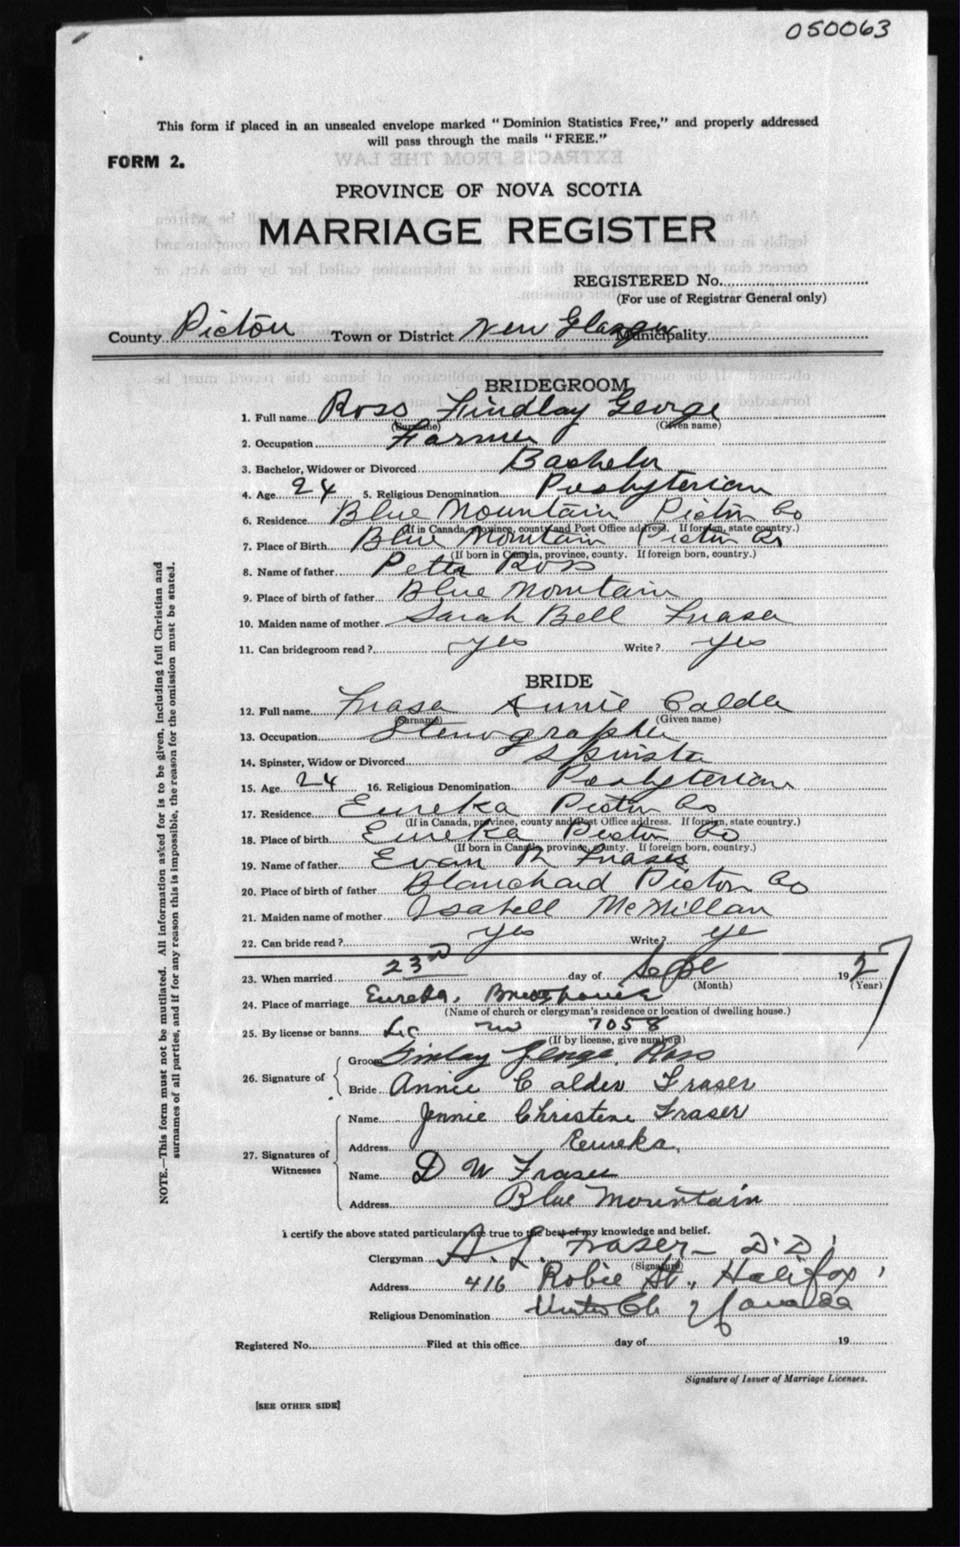 050063
This form if placed in an unsealed envelope marked "Dominion Statistics Free," and properly addressed
will pass through the mails "FREE."
FORM 2.
PROVINCE OF NOVA SCOTIA
MARRIAGE REGISTER
REGISTERED No.
(For use of Registrar General only)
County Pictou Town or District New Glasgow Municipality
BRIDEGROOM
1. Full name Ross Findlay George
(Surname) (Given name)
2. Occupation Farmer
3. Bachelor, Widower or Divorced Bachelor
4. Age 24 5. Religious Denomination Presbyterian
6. Residence Blue Mountain Pictou Co
(If in Canada, province, county and Post Office address. If foreign, state country.)
7. Place of Birth Blue Mountain Pictou Co
(If born in Canada, province, county. If foreign born, country.)
8. Name of father Peter Ross
9. Place of birth of father Blue Mountain
10. Maiden name of mother Sarah Bell Fraser
11. Can bridegroom read? yes Write? yes
BRIDE
12. Full name Fraser Annie Calder
(Surname) (Given name)
13. Occupation Stenographer
14. Spinster, Widow or Divorced Spinster
15. Age 24 16. Religious Denomination Presbyterian
17. Residence Eureka Pictou Co
(If in Canada, province, county and Post Office address. If foreign, state country.)
18. Place of birth Eureka Pictou Co
(If born in Canada, province, county. If foreign born, country.)
19. Name of father Evan Fraser
20. Place of birth of father Blanchard Pictou Co
21. Maiden name of mother Isabell McMillan
22. Can bride read? yes Write? ye
23. When married 23rd day of Sept 1927
(Month) (Year)
24. Place of marriage Eureka, Brides house
(Name of church or clergyman's residence or location of dwelling house.)
25. By license or banns Lic no 7058
(If by license, give number)
26. Signature of
Groom Finlay George Ross
Bride Annie Calder Fraser
27. Signatures of Witnesses
Name Jennie Christene Fraser
Address Eureka,
Name D W Fraser
Address Blue Mountain
I certify the above stated particulars are true to the best of my knowledge and belief.
Clergyman A. L. Fraser - D.D.
(Signature)
Address 416 Robie St., Halifax,
Religious Denomination United Ch of Canada
Registered No. Filed at this office day of 19
Signature of Issuer of Marriage Licenses.
[SEE OTHER SIDE]
NOTE.—This form must not be mutilated. All information asked for is to be given, including full Christian and
surnames of all parties, and if for any reason this is impossible, the reason for the omission must be stated.